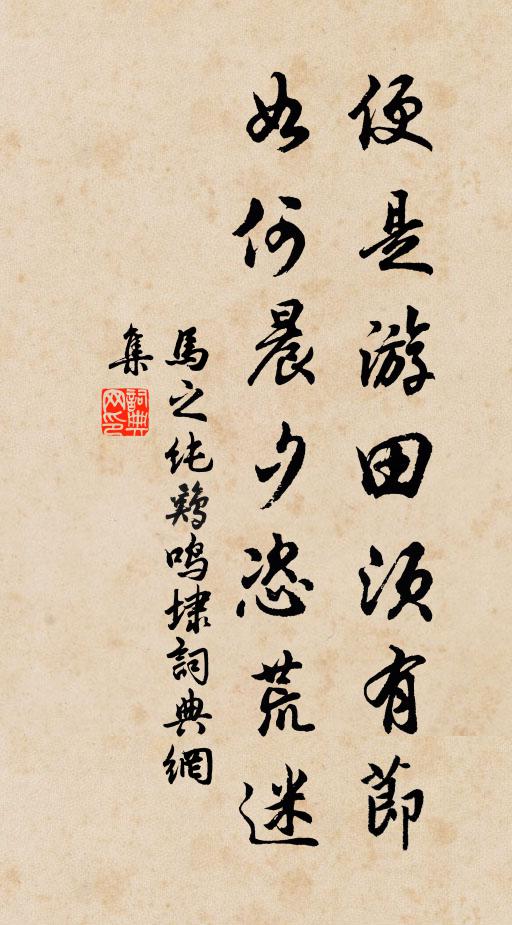 便是游田须有節
如何晨夕恣荒迷
馬之纯鷄鸣埭詞典網
集
詞典
网印